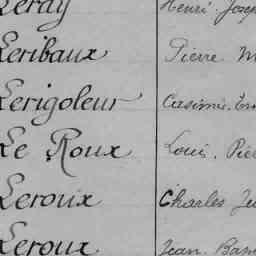 Leray Henri Josep
Leribaux Pierre M
Lerigoleur Casimir Ern
Le Roux Louis. Pie
Leroux Charles Ju
Leroux Jean Bap